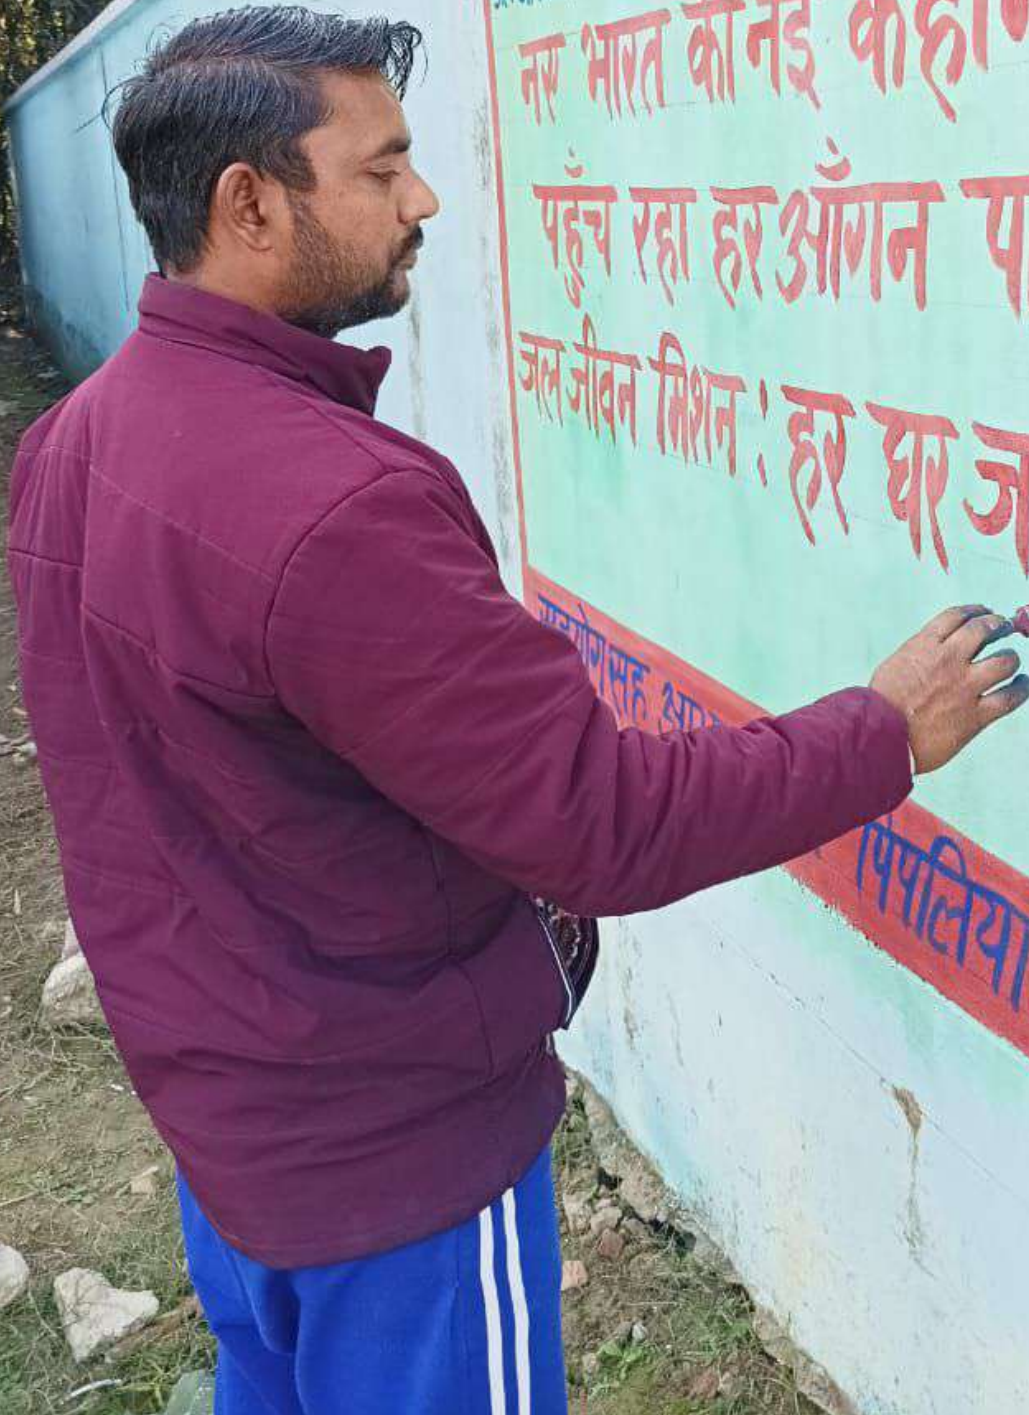 नए भारत की नई कहा
पहुँच रहा हर आँगन
जल जीवन मिशन : हर घर ज
सहयोग सह
पिपलिया